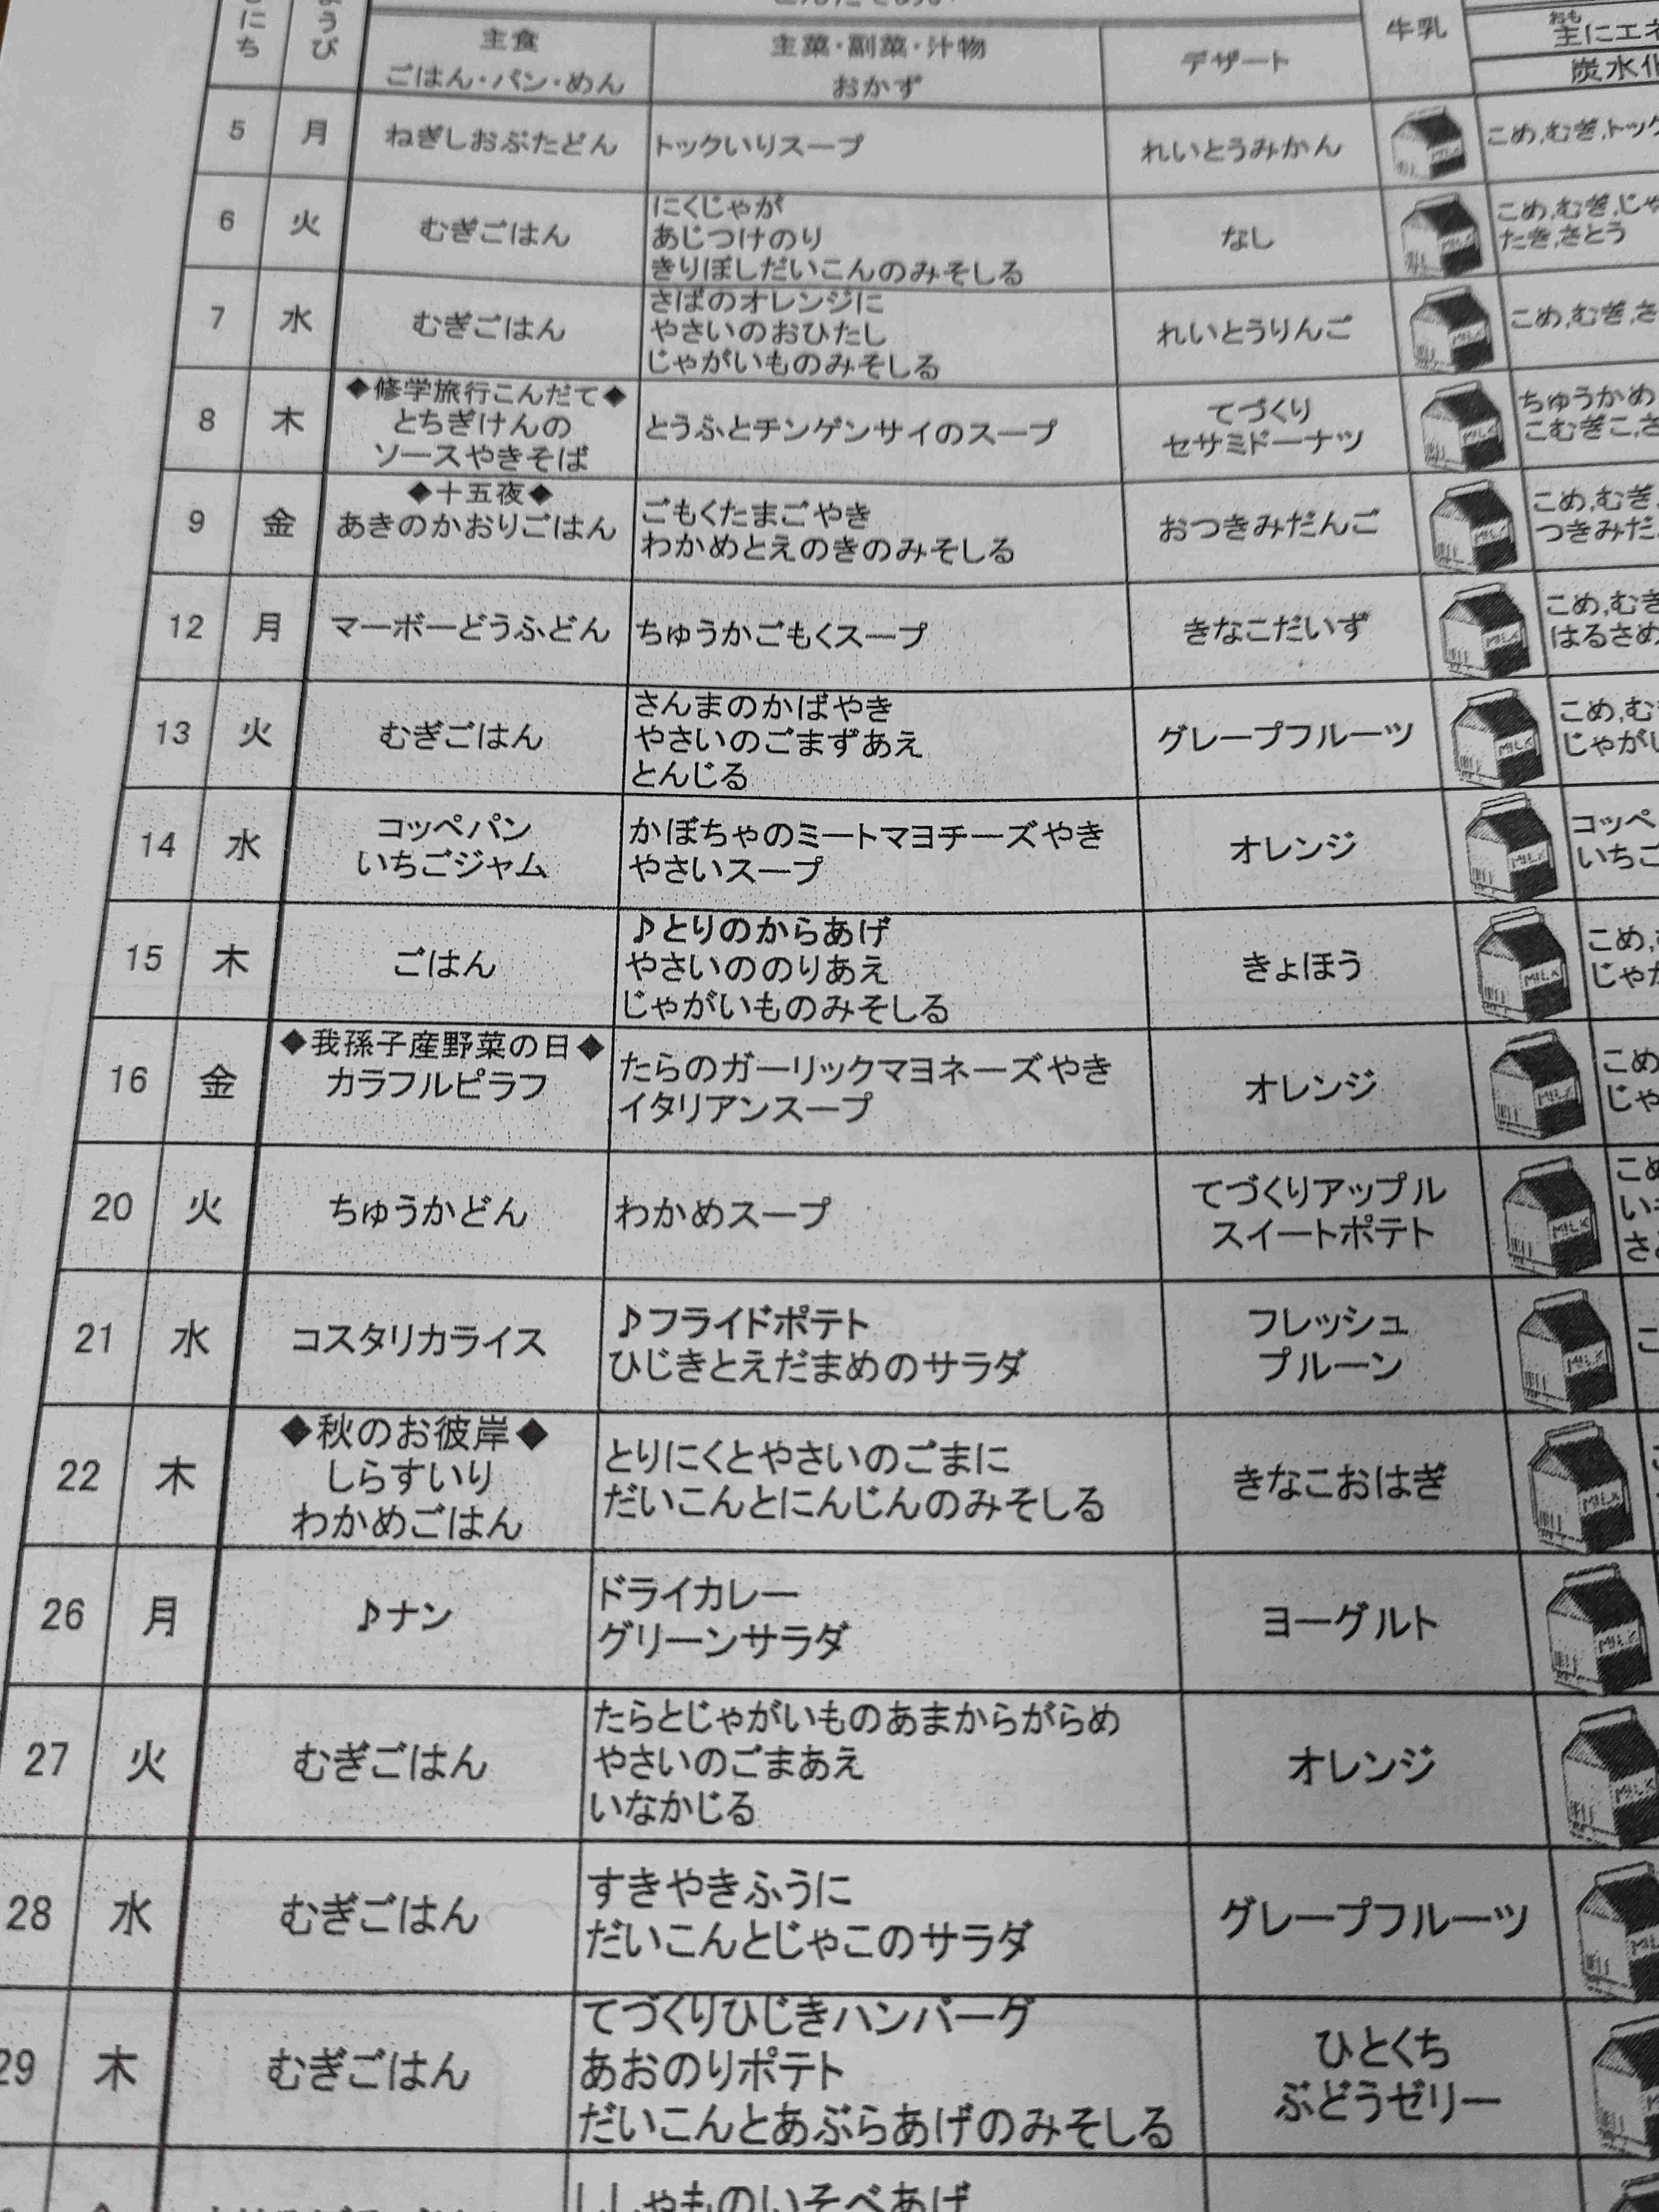 にち
ようび
主食
ごはん・パン・めん
主菜・副菜・汁物
おかず
デザート
牛乳
おも
主にエネ
炭水化
5 月 ねぎしおぶたどん トックいりスープ れいとうみかん MILK こめ,むぎ,トック
6 火 むぎごはん
にくじゃが
あじつけのり
きりぼしだいこんのみそしる
なし MILK
こめ,むぎ,じゃ
たき,さとう
7 水 むぎごはん
さばのオレンジに
やさいのおひたし
じゃがいものみそしる
れいとうりんご MILK こめ,むぎ,さ
8 木
◆修学旅行こんだて◆
とちぎけんの
ソースやきそば
とうふとチンゲンサイのスープ
てづくり
セサミドーナツ
MILK
ちゅうかめ
こむぎこ,さ
9 金
◆十五夜◆
あきのかおりごはん
ごもくたまごやき
わかめとえのきのみそしる
おつきみだんご MILK
こめ,むぎ,
つきみだ
12 月 マーボーどうふどん ちゅうかごもくスープ きなこだいず MILK
こめ,むぎ
はるさめ
13 火 むぎごはん
さんまのかばやき
やさいのごまずあえ
とんじる
グレープフルーツ MILK
こめ,むぎ
じゃがい
14 水
コッペパン
いちごジャム
かぼちゃのミートマヨチーズやき
やさいスープ
オレンジ MILK
コッペ
いちご
15 木 ごはん
♪とりのからあげ
やさいののりあえ
じゃがいものみそしる
きょほう MILK
こめ,
じゃが
16 金
◆我孫子産野菜の日◆
カラフルピラフ
たらのガーリックマヨネーズやき
イタリアンスープ
オレンジ MILK
こめ
じゃ
20 火 ちゅうかどん わかめスープ
てづくりアップル
スイートポテト
MILK
こめ
い
さ
21 水 コスタリカライス
♪フライドポテト
ひじきとえだまめのサラダ
フレッシュ
プルーン
MILK
こ
22 木
◆秋のお彼岸◆
しらすいり
わかめごはん
とりにくとやさいのごまに
だいこんとにんじんのみそしる
きなこおはぎ MILK
26 月 ♪ナン
ドライカレー
グリーンサラダ
ヨーグルト MILK
27 火 むぎごはん
たらとじゃがいものあまからがらめ
やさいのごまあえ
いなかじる
オレンジ MILK
28 水 むぎごはん
すきやきふうに
だいこんとじゃこのサラダ
グレープフルーツ MILK
29 木 むぎごはん
てづくりひじきハンバーグ
あおのりポテト
だいこんとあぶらあげのみそしる
ひとくち
ぶどうゼリー
ししゃものいそべあげ